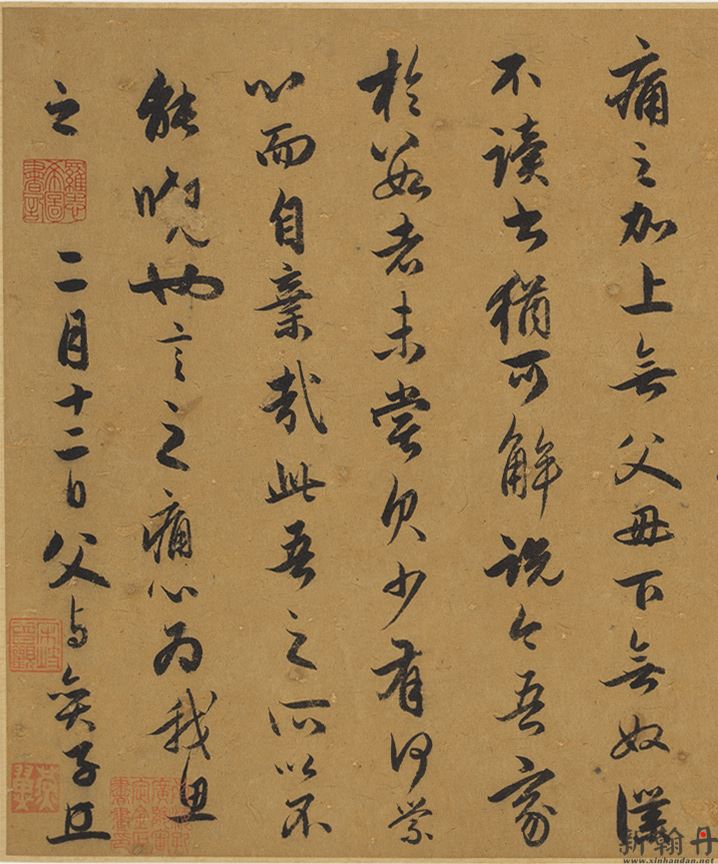 痛之加上無父母下無奴僕
不讀书猶可解说今吾家
於數者未嘗欠少有何縈
心而自棄哉此吾之所以不
能曉也言之痛心为我思
之
二月十二日父与奕子
新翰丹
www.xinhandan.net